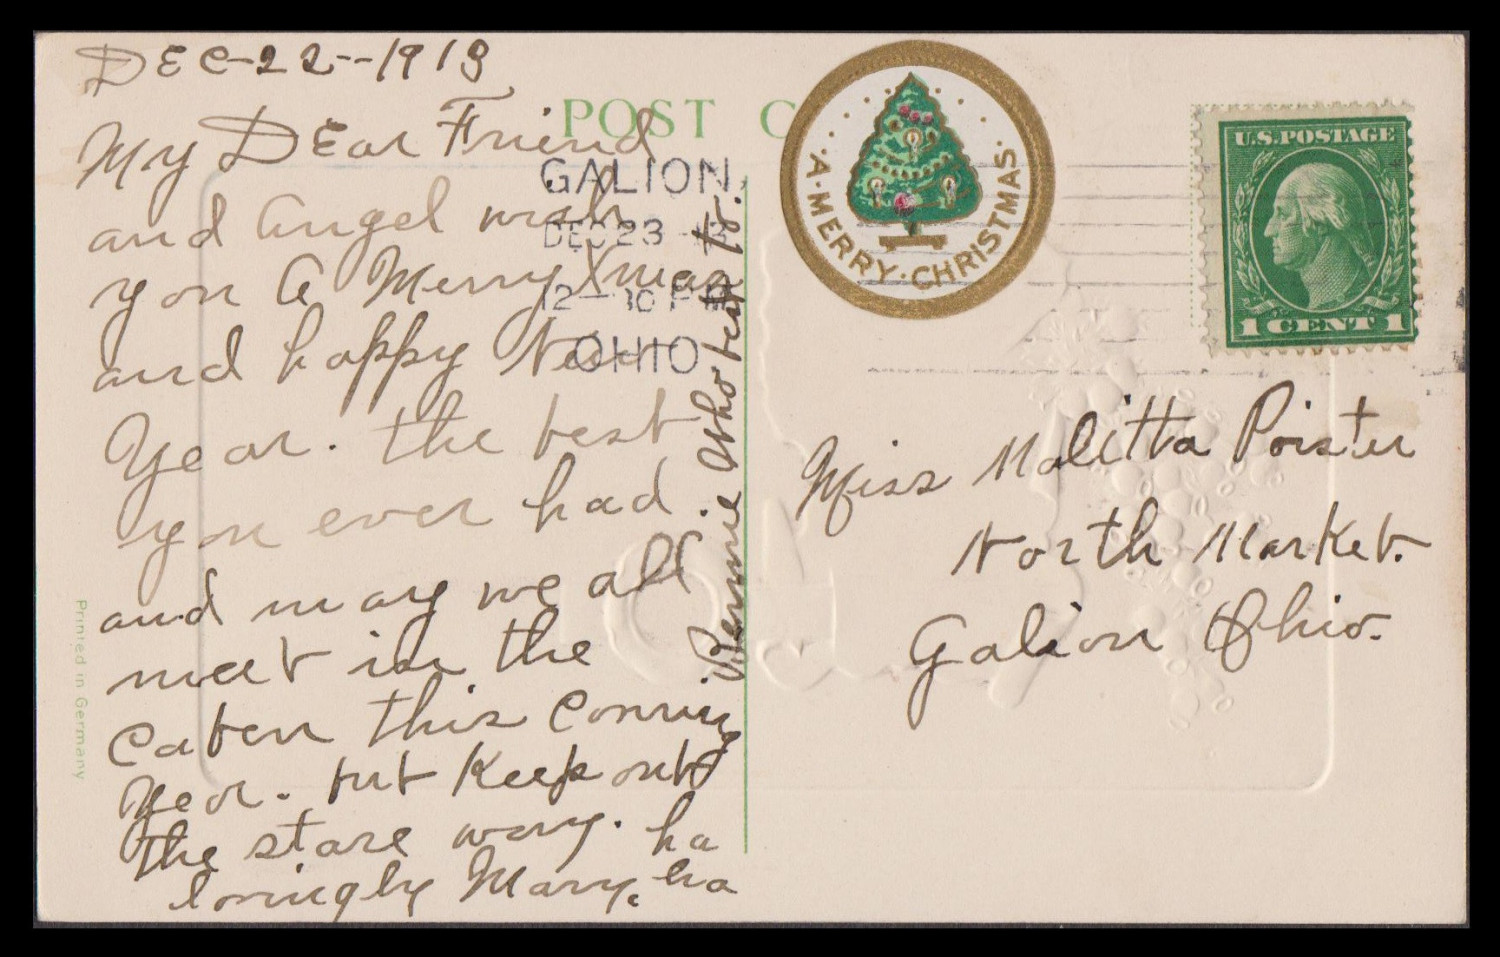 DEC-22--1913
My DEar Friend
and angel wish
you A Merry Xmas
and happy New
Year. the best
you ever had.
and may we all
meet in the
caben this Comming
Year. but Keep out
the stare way. ha
lovingly Mary. ha
Bennie Who
to.
POST C
GALION,
DEC 23
12— 30 P M
OHIO
A·MERRY·CHRISTMAS·
U.S.POSTAGE
1 CENT 1
Miss Malitta Poister
North Market.
Galion Ohio.
Printed in Germany